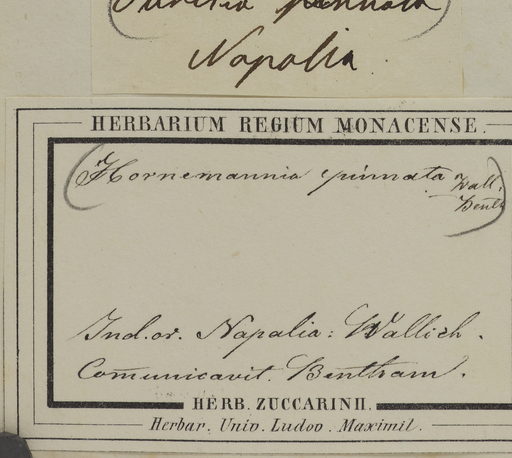 pinnata)
Napalia
HERBARIUM REGIUM MONACENSE.
(Hornemannia pinnata Wall.
Benth)
Ind. or. Napalia: Wallich.
Comunicavit. Bentham.
HERB. ZUCCARINII.
Herbar. Univ. Ludov. Maximil.